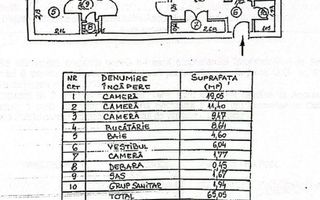 NR CRT DENUMIRE ÎNCĂPERE SUPRAFAȚA (MP)
1 CAMERĂ 19,05
2 CAMERĂ 11,40
3 CAMERĂ 9,47
4 BUCĂTĂRIE 8,64
5 BAIE 4,60
6 VESTIBUL 6,04
7 CAMERĂ 1,77
8 DEBARA 0,45
9 SAS 1,67
10 GRUP SANITAR 1,94
TOTAL 65,05